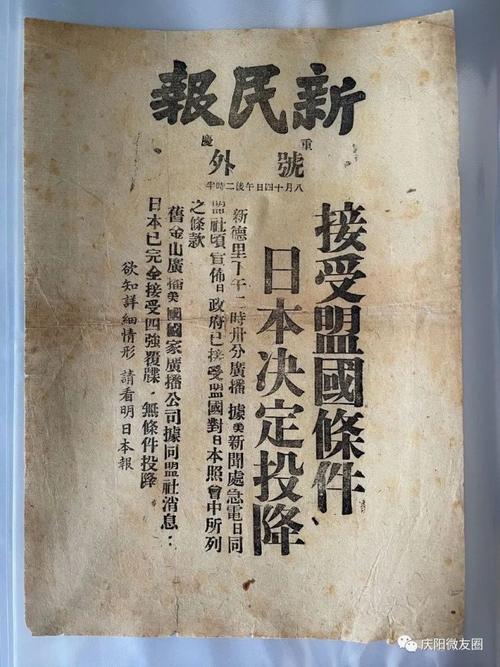 新民報
重慶
號外
八月十四日午後二時半
接受盟國條件
日本决定投降
新德里下午二時卅分廣播 據美新聞處急電日同
盟社頃宣佈日政府已接受盟國對日本照會中所列
之條款
舊金山廣播美國國家廣播公司據同盟社消息：
日本已完全接受四強覆牒．無條件投降
欲知詳細情形 請看明日本報
庆阳微友圈